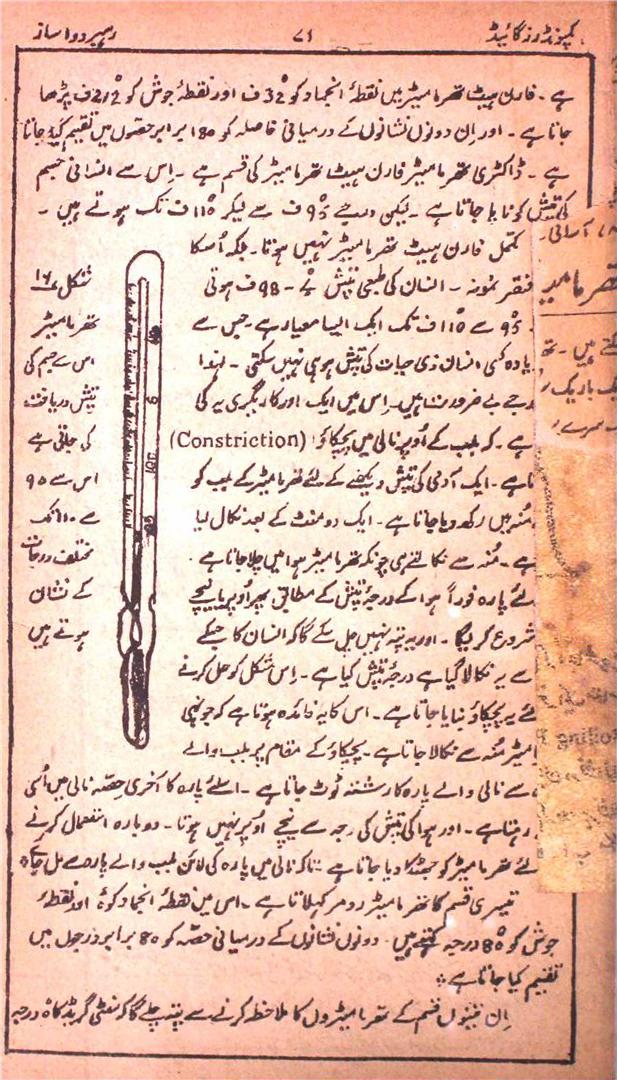 کمپونڈرز گائیڈ ۷۱ رہبر دواساز
ہے۔ فارن ہیٹ تھرمامیٹر میں نقطۂ انجماد کو °32 ف اور نقطۂ جوش کو °212 ف پڑھا
جاتا ہے۔ اور اِن دونوں نشانوں کے درمیانی فاصلہ کو 180 برابر حصّوں میں تقسیم کیا جاتا
ہے۔ ڈاکٹری تھرمامیٹر فارن ہیٹ تھرمامیٹر کی قسم ہے۔ اِس سے انسانی جسم
کی تپش کو ناپا جاتا ہے۔ لیکن درجے °95 ف سے لیکر °110 ف تک ہوتے ہیں۔
مکمل فارن ہیٹ تھرمامیٹر نہیں ہوتا۔ بلکہ اُسکا
نمونہ۔ انسان کی طبعی تپش 98 ف ہوتی
°95 سے °110 ف تک ایک ایسا معیار ہے جس سے
یادہ کسی انسان ذی حیات کی تپش ہو ہی نہیں سکتی۔ لہٰذا
جے بے ضرورت ہیں۔ اِس میں ایک اور کاریگری یہ کی
ہے۔ کہ بلب کے اُوپر نالی میں پچکاؤ (Constriction)
تا ہے۔ ایک آدمی کی تپش دیکھنے کے لئے تھرمامیٹر کے بلب کو
مُنہ میں رکھ دیا جاتا ہے۔ ایک دو منٹ کے بعد نکال لیا
ہے۔ مُنہ سے نکالتے ہی چونکہ تھرمامیٹر ہوا میں چلا جاتا ہے
لئے پارہ فوراً ہوا کے درجۂ تپش کے مطابق پھر اُوپر یا نیچے
شروع کریگا۔ اور یہ پتہ نہیں چل سکے گا کہ انسان کا جسکے
سے یہ نکالا گیا ہے درجۂ تپش کیا ہے۔ اِس مُشکل کو حل کرنے
ئے یہ پچکاؤ بنایا جاتا ہے۔ اس کا یہ فائدہ ہوتا ہے کہ جونہی
امیٹر مُنہ سے نکالا جاتا ہے۔ پچکاؤ کے مقام پر بلب والے
سے نالی والے پارہ کا رشتہ ٹوٹ جاتا ہے۔ اسلئے پارہ کا آخری حِصّہ نالی میں اُسی
رہتا ہے۔ اور ہوا کی تپش کی وجہ سے نیچے اُوپر نہیں ہوتا۔ دوبارہ استعمال کرنے
لئے تھرمامیٹر کو جھٹکا دیا جاتا ہے۔ تاکہ نالی میں پارہ کی لائن بلب والے پارہ سے مل جائے
تیسری قسم کا تھرمامیٹر رومر کہلاتا ہے۔ اس میں نقطۂ انجماد کو °0 اور نقطۂ
جوش کو °80 درجہ کہتے ہیں۔ دونوں نشانوں کے درمیانی حصّہ کو 80 برابر درجوں میں
تقسیم کیا جاتا ہے۔
اِن تینوں قسم کے تھرمامیٹروں کا ملاحظہ کرنے سے پتہ چلے گا کہ سنٹی گریڈ کا °0 درجہ
شکل ۱۶
تھرمامیٹر
اس سے جسم کی
تپش دریافت
کی جاتی ہے
اس سے ۹۵
سے ۱۱۰ تک
مختلف درجات
کے نشان
ہوتے ہیں
تھرمامیٹ